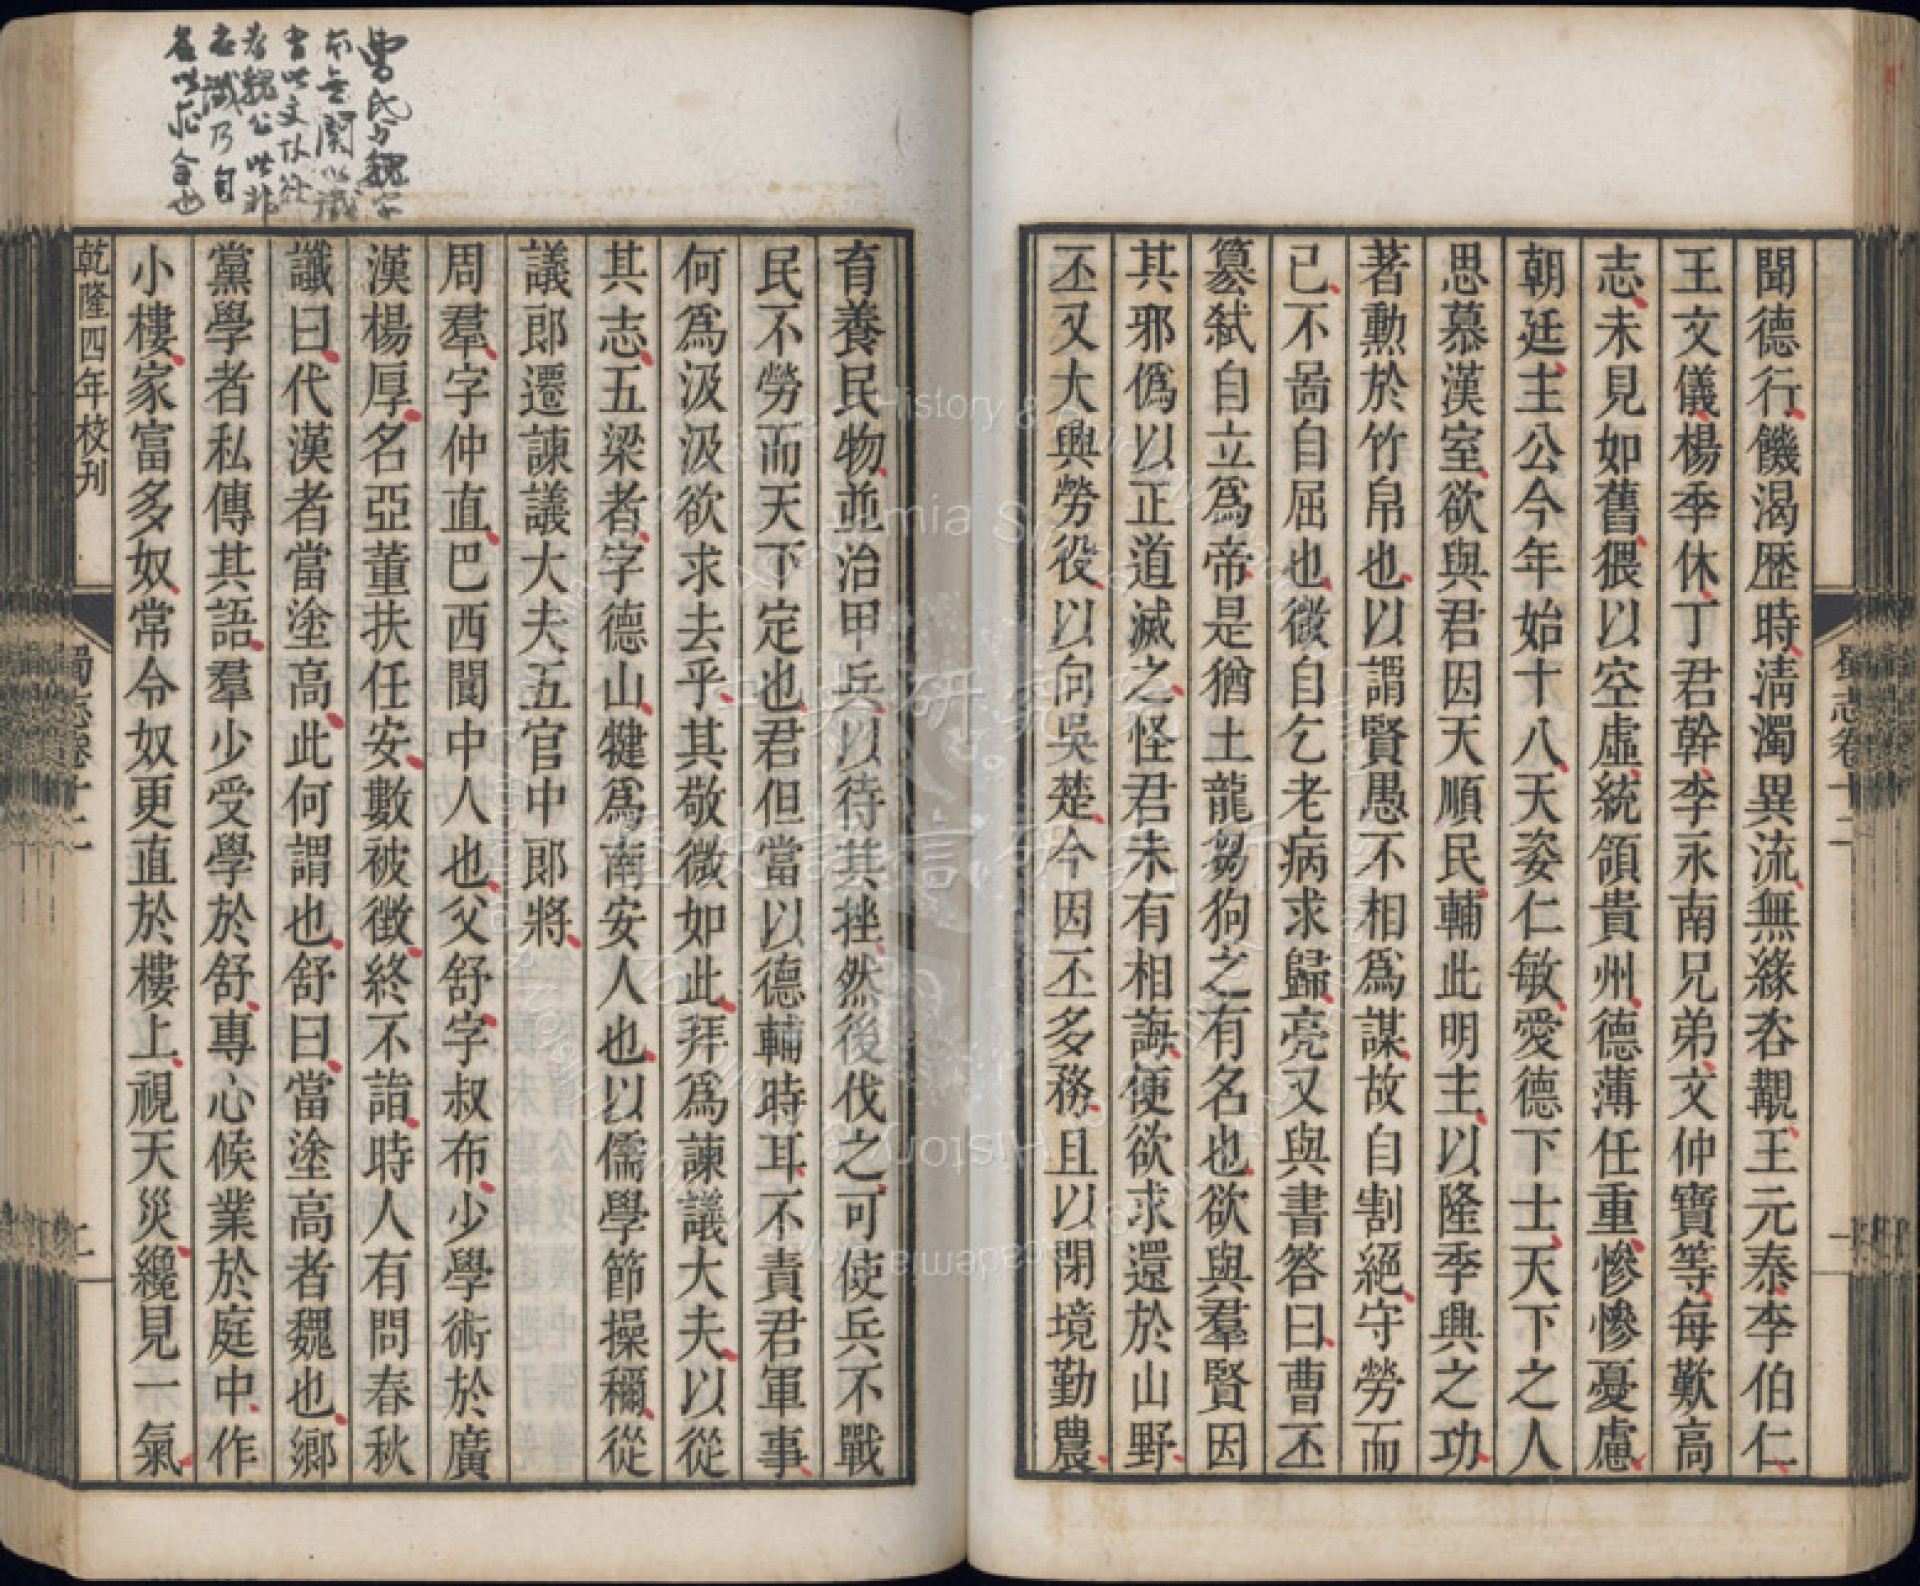 聞德行饑渴歷時清濁異流無緣咨覯王元泰李伯仁
王文儀楊季休丁君幹李永南兄弟文仲寶等每歎高
志未見如舊猥以空虛統領貴州德薄任重慘慘憂慮
朝廷主公今年始十八天姿仁敏愛德下士天下之人
思慕漢室欲與君因天順民輔此明主以隆季興之功
著勳於竹帛也以謂賢愚不相爲謀故自割絕守勞而
已不啚自屈也微自乞老病求歸亮又與書答曰曹丕
篡弑自立爲帝是猶土龍芻狗之有名也欲與羣賢因
其邪僞以正道滅之怪君未有相誨便欲求還於山野
丕又大興勞役以向吳楚今因丕多務且以閉境勤農
蜀志卷十二
育養民物並治甲兵以待其挫然後伐之可使兵不戰
民不勞而天下定也君但當以德輔時耳不責君軍事
何爲汲汲欲求去乎其敬微如此拜爲諫議大夫以從
其志五梁者字德山犍爲南安人也以儒學節操稱從
議郎遷諫議大夫五官中郎將
周羣字仲直巴西閬中人也父舒字叔布少學術於廣
漢楊厚名亞董扶任安數被徵終不詣時人有問春秋
讖曰代漢者當塗高此何謂也舒曰當塗高者魏也鄉
黨學者私傳其語羣少受學於舒專心候業於庭中作
小樓家富多奴常令奴更直於樓上視天災纔見一氣
乾隆四年校刊
蜀志卷十二
二
曹氏与魏
本無關
書此文故
者魏公此非
在讖乃自